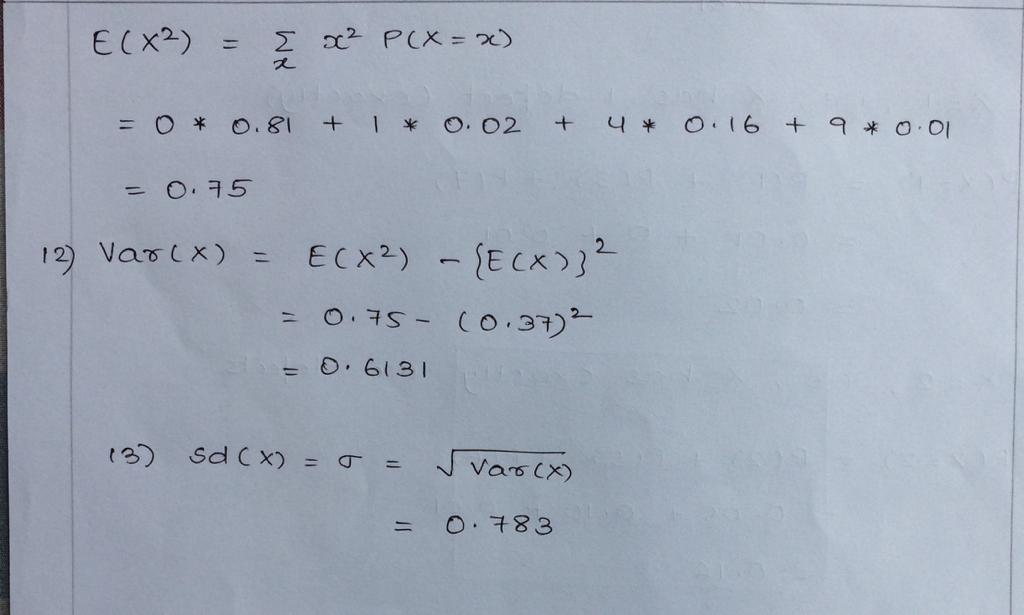 E(X²) = Σ x² P(X = x)
x
= 0 * 0.81 + 1 * 0.02 + 4 * 0.16 + 9 * 0.01
= 0.75
12) Var(X) = E(X²) - {E(X)}²
= 0.75 - (0.37)²
= 0.6131
13) Sd(X) = σ = √Var(X)
= 0.783